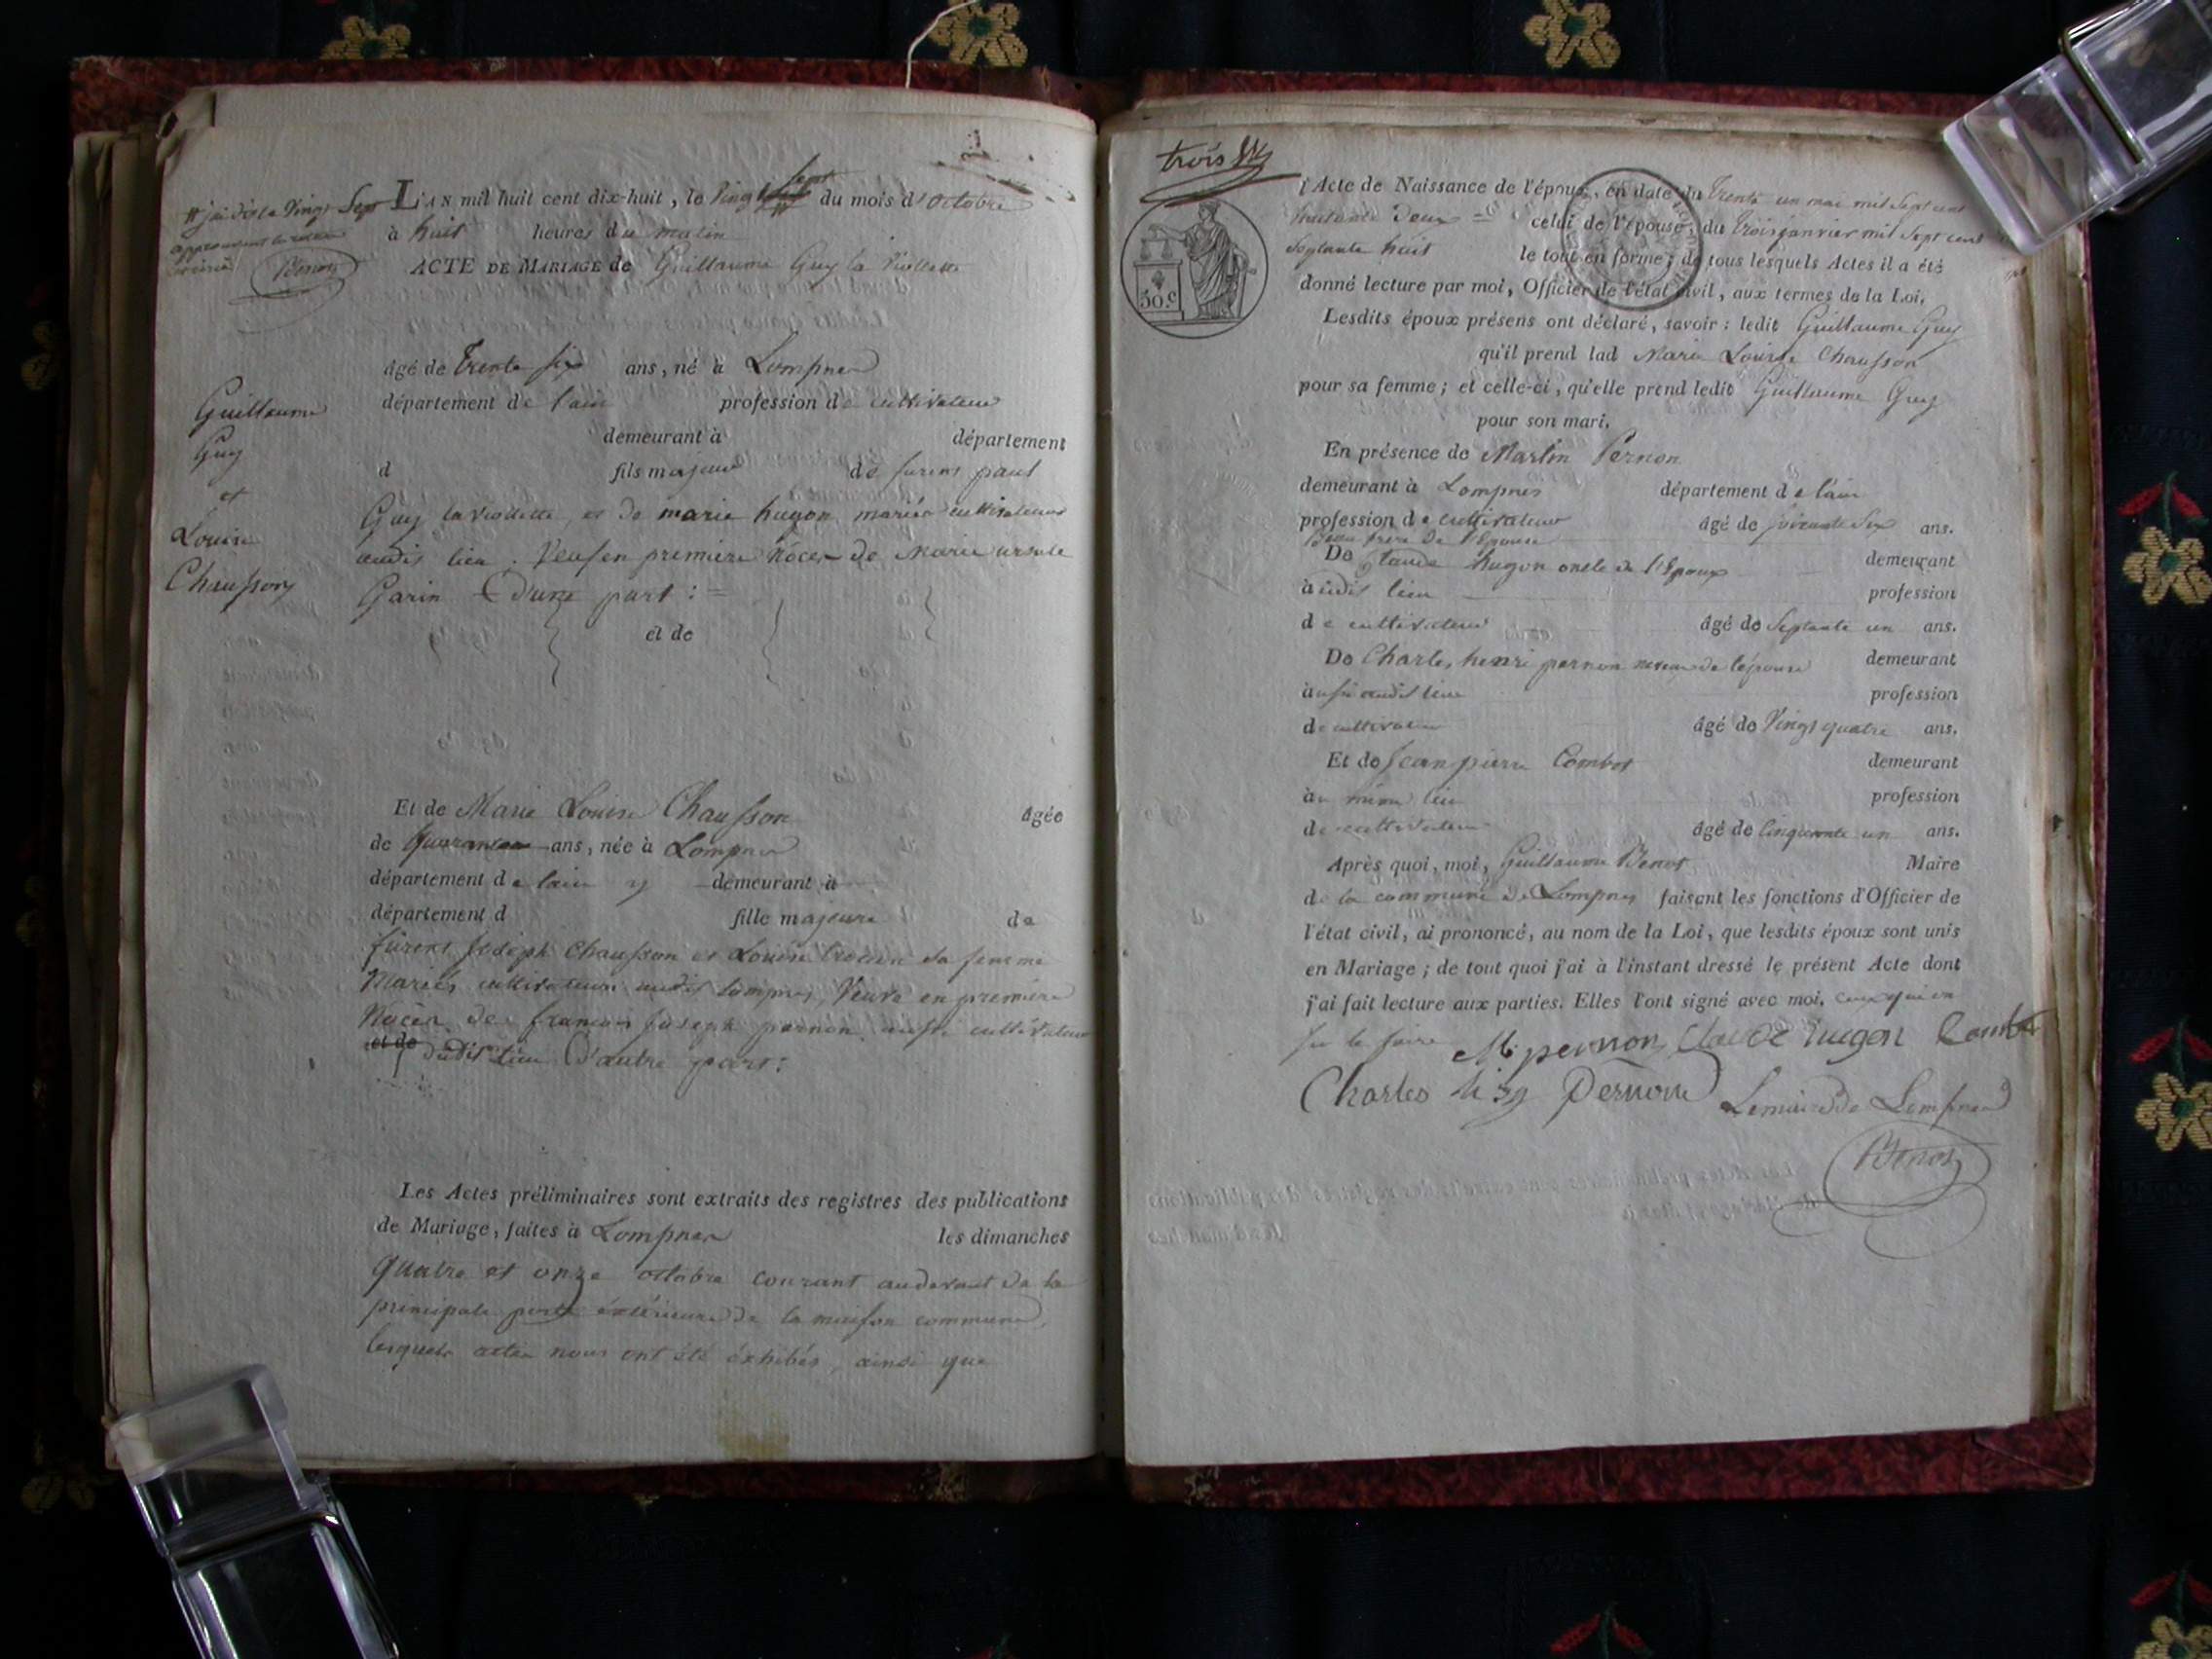 # j'ai dis le Vingt Sept
approuvant la
Benoz
L'AN mil huit cent dix-huit, le Vingt sept du mois d'Octobre
à huit heures du matin
ACTE DE MARIAGE de Guillaume Guy la Viollette
âgé de Trente six ans, né à Lompnes
département de l'ain profession de cultivateur
demeurant à département
d fils majeur de furent paul
Guy la viollette, et de marie hugon mariés cultivateurs
audit lieu. Veuf en premiere Nôces de Marie ursule
Garin D'une part :=
et de
Guillaume
Guy
et
Louise
Chausson
Et de Marie Louise Chausson âgée
de Quarante ans, née à Lompnes
département de lain y demeurant à
département d fille majeure de
furent Joseph Chausson et Louise sa femme
Mariés cultivateurs audit Lompnes, Veuve en premiere
Nôces de francois Joseph pernon aussi cultivateur
et de dudit lieu D'autre part :
Les Actes préliminaires sont extraits des registres des publications
de Mariage, faites à Lompnes les dimanches
Quatre et onze octobre courant audevant de la
principale porte éxtérieure de la maison commune,
lesquels actes nous ont été éxhibés, ainsi que
trois
50.c
l'Acte de Naissance de l'époux, en date du Trente un mai mil Sept cent
huitante Deux = celui de l'épouse, du Trois janvier mil Sept cent
Septante huit le tout en forme; de tous lesquels Actes il a été
donné lecture par moi, Officier de l'état civil, aux termes de la Loi.
Lesdits époux présens ont déclaré, savoir : ledit Guillaume Guy
qu'il prend lad Marie Louise Chausson
pour sa femme; et celle-ci, qu'elle prend ledit Guillaume Guy
pour son mari.
En présence de Martin Pernon
demeurant à Lompnes département de l'ain
profession de cultivateur âgé de soixante Six ans.
Beau frere de l'Epouse
De Claude hugon oncle de l'Epoux demeurant
àudit lieu profession
de cultivateur âgé de Septante un ans.
De Charles henri pernon neveu de l'épouse demeurant
àussi audit lieu profession
de cultivateur âgé de Vingt quatre ans.
Et de Jean pierre Combet demeurant
àu même lieu profession
de cultivateur âgé de Cinquante un ans.
Après quoi, moi, Guillaume Benoz Maire
de la commune de Lompnes faisant les fonctions d'Officier de
l'état civil, ai prononcé, au nom de la Loi, que lesdits époux sont unis
en Mariage; de tout quoi j'ai à l'instant dressé le présent Acte dont
j'ai fait lecture aux parties. Elles l'ont signé avec moi. ceux qui on
su le faire M. pernon Claude hugon Combet
Charles Pernon Le maire de Lompnes
Benoz